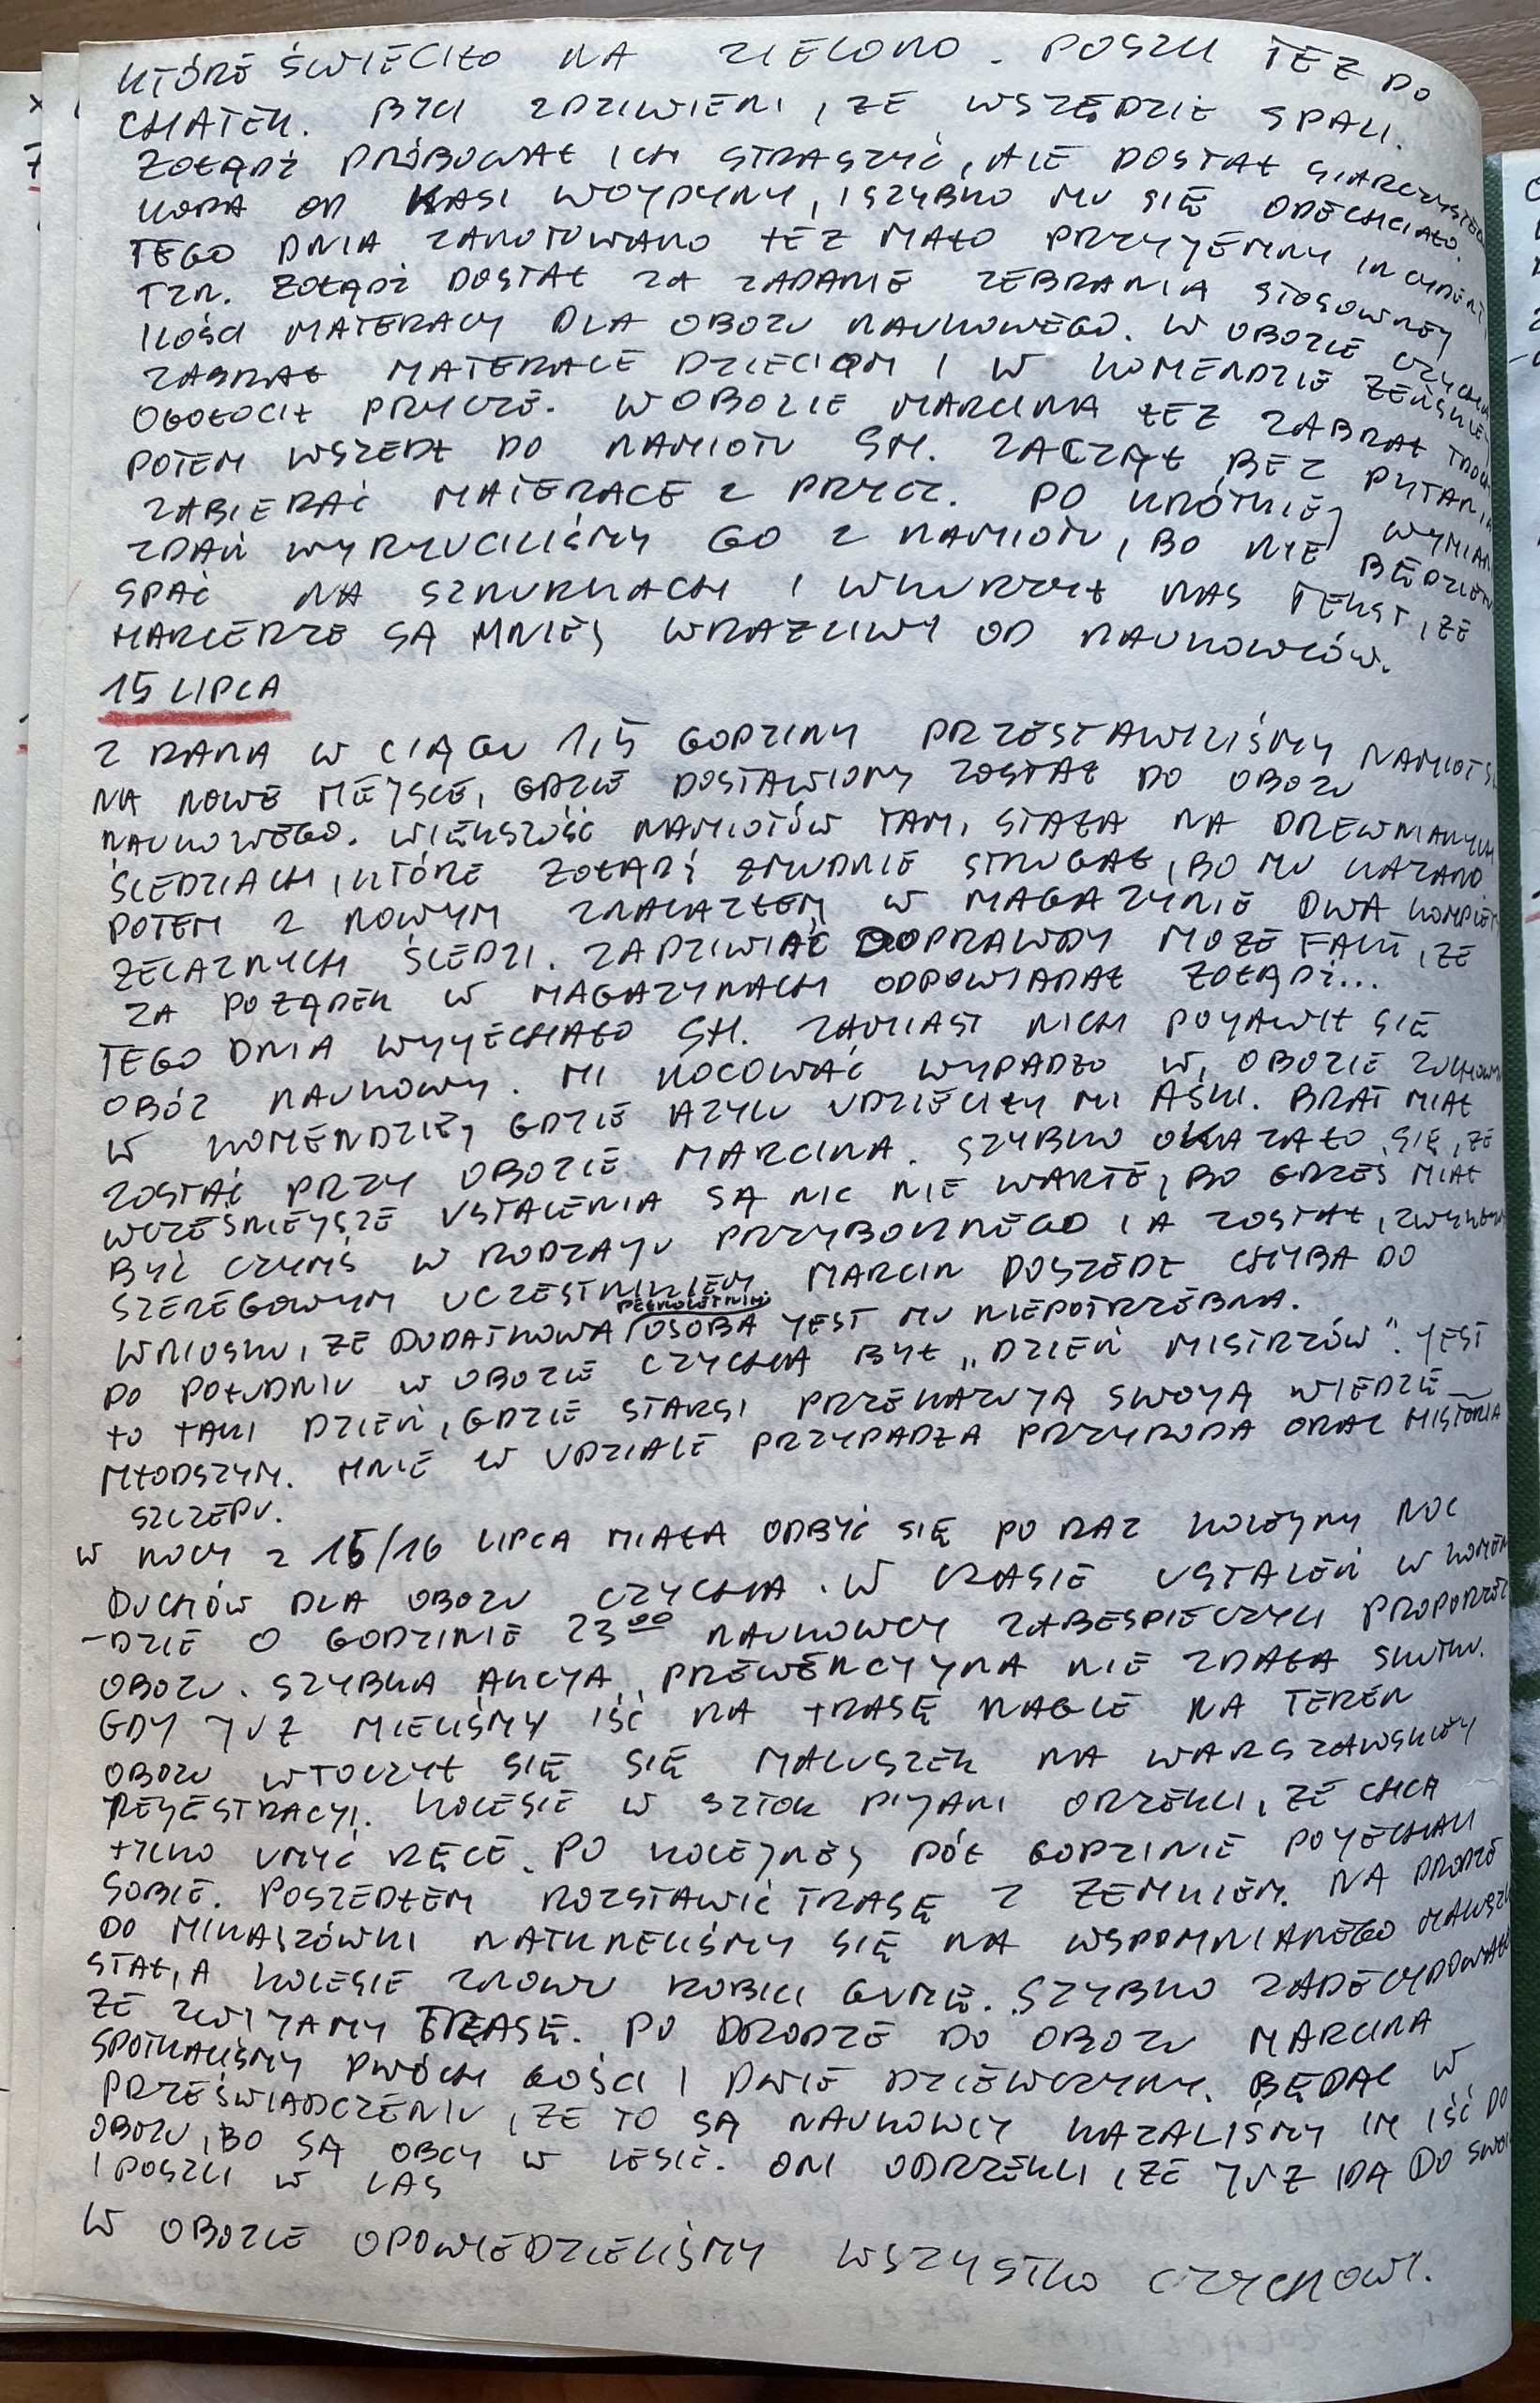 KTÓRE ŚWIECIŁO NA ZIELONO. POSZLI TEŻ DO
CHATEK. BYLI ZDZIWIENI, ŻE WSZĘDZIE SPALI.
ŻOŁĄDŹ PRÓBOWAŁ ICH STRASZYĆ, ALE DOSTAŁ SIARCZYSTEGO
KOPA OD KASI WOYDYNY, I SZYBKO MU SIĘ ODECHCIAŁO.
TEGO DNIA ZANOTOWANO TEŻ MAŁO PRZYJEMNY INCYDENT,
TZN. ŻOŁĄDŹ DOSTAŁ ZA ZADANIE ZEBRANIA STOSOWNEJ
ILOŚCI MATERACY DLA OBOZU NAUKOWEGO. W OBOZIE CZYCHA
ZABRAŁ MATERACE DZIECIOM I W KOMENDZIE ŻEŃSKIEJ
OGOŁOCIŁ PRYCZE. W OBOZIE MARCINA TEŻ ZABRAŁ TROCHĘ
POTEM WSZEDŁ DO NAMIOTU SH. ZACZĄŁ BEZ PYTANIA
ZABIERAĆ MATERACE Z PRYCZ. PO KRÓTKIEJ WYMIANIE
ZDAŃ WYRZUCILIŚMY GO Z NAMIOTU, BO NIE BĘDZIEMY
SPAĆ NA SZNURKACH I WKURZYŁ NAS TEKST, ŻE
HARCERZE SĄ MNIEJ WRAŻLIWI OD NAUKOWCÓW.
15 LIPCA
Z RANA W CIĄGU 1,5 GODZINY PRZESTAWILIŚMY NAMIOT SH
NA NOWE MIEJSCE, GDZIE DOSTAWIONY ZOSTAŁ DO OBOZU
NAUKOWEGO. WIĘKSZOŚĆ NAMIOTÓW TAM, STAŁA NA DREWNIANYCH
ŚLEDZIACH, KTÓRE ŻOŁĄDŹ ŻMUDNIE STRUGAŁ, BO MU KAZANO.
POTEM Z NOWYM ZNALAZŁEM W MAGAZYNIE DWA KOMPLETY
ŻELAZNYCH ŚLEDZI. ZADZIWIAĆ DOPRAWDY MOŻE FAKT, ŻE
ZA POŻĄDEK W MAGAZYNACH ODPOWIADAŁ ŻOŁĄDŹ...
TEGO DNIA WYJECHAŁO SH. ZAMIAST NICH POJAWIŁ SIĘ
OBÓZ NAUKOWY. MI NOCOWAĆ WYPADŁO W OBOZIE ZUCHOWYM
W KOMENDZIE, GDZIE AZYLU UDZIELIŁY MI AŚKI. BRAT MIAŁ
ZOSTAĆ PRZY OBOZIE MARCINA. SZYBKO OKAZAŁO SIĘ, ŻE
WCZEŚNIEJSZE USTALENIA SĄ NIC NIE WARTE, BO GRZEŚ MIAŁ
BYĆ CZYMŚ W RODZAJU PRZYBOCZNEGO I A ZOSTAŁ, ZWYKŁYM
SZEREGOWYM UCZESTNIKIEM. MARCIN DOSZEDŁ CHYBA DO
WNIOSKU, ŻE DODATKOWA PEŁNOLETNIA OSOBA JEST MU NIEPOTRZEBNA.
PO POŁUDNIU W OBOZIE CZYCHA BYŁ „DZIEŃ MISTRZÓW". JEST
TO TAKI DZIEŃ, GDZIE STARSI PRZEKAZUJĄ SWOJĄ WIEDZĘ
MŁODSZYM. MNIE W UDZIALE PRZYPADŁA PRZYRODA ORAZ HISTORIA
SZCZEPU.
W NOCY Z 15/16 LIPCA MIAŁA ODBYĆ SIĘ PO RAZ KOLEJNY NOC
DUCHÓW DLA OBOZU CZYCHA. W CZASIE USTALEŃ W KOMEN
-DZIE O GODZINIE 23⁰⁰ NAUKOWCY ZABESPIECZYLI PROPORZEC
OBOZU. SZYBKA AKCJA PREWENCYJNA NIE ZDAŁA SKUTKU.
GDY JUŻ MIELIŚMY IŚĆ NA TRASĘ NAGLE NA TEREN
OBOZU WTOCZYŁ SIĘ SIĘ MALUSZEK NA WARSZAWSKIEJ
REJESTRACJI. KOLESIE W SZTOK PIJANI ORZEKLI, ŻE CHCĄ
TYLKO UMYĆ RĘCE. PO KOLEJNEJ PÓŁ GODZINIE POJECHALI
SOBIE. POSZEDŁEM ROZSTAWIĆ TRASĘ Z ZEMKIEM. NA DRODZE
DO MIKASZÓWKI NATKNELIŚMY SIĘ NA WSPOMNIANEGO MALUSZKA
STAŁ, A KOLESIE ZNOWU ROBILI GUMĘ. SZYBKO ZADECYDOWAŁEM
ŻE ZWIJAMY TRASĘ. PO DRODZE DO OBOZU MARCINA
SPOTKALIŚMY DWÓCH GOŚCI I DWIE DZIEWCZYNY. BĘDĄC W
PRZEŚWIADCZENIU, ŻE TO SĄ NAUKOWCY KAZALIŚMY IM IŚĆ DO
OBOZU, BO SĄ OBCY W LESIE. ONI ODRZEKLI, ŻE JUŻ IDĄ DO SWOICH
I POSZLI W LAS
W OBOZIE OPOWIEDZIELIŚMY WSZYSTKO CZYCHOWI.